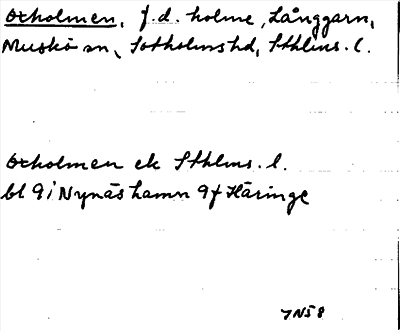 Oxholmen, f.d. holme, Långgarn,
Muskö sn, Sotholms hd, Sthlms. l.
Oxholmen ek Sthlms. l.
bl 9i Nynäshamn 9f Häringe
7N58